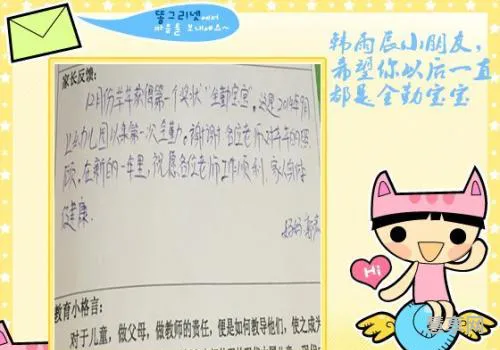 똥그리넷에서
마음을 보내세요~
韩雨辰小朋友，
希望你以后一直
都是全勤宝宝
家长反馈：
12月份羊羊获得第一个奖状"全勤宝宝"，这是2014年9月
上幼儿园以来第一次全勤。谢谢各位老师对羊羊的照
顾，在新的一年里，祝愿各位老师工作顺利，家人身体
健康。
妈妈
教育小格言：
对于儿童，做父母，做教师的责任，便是如何教导他们，使之成为
Hi